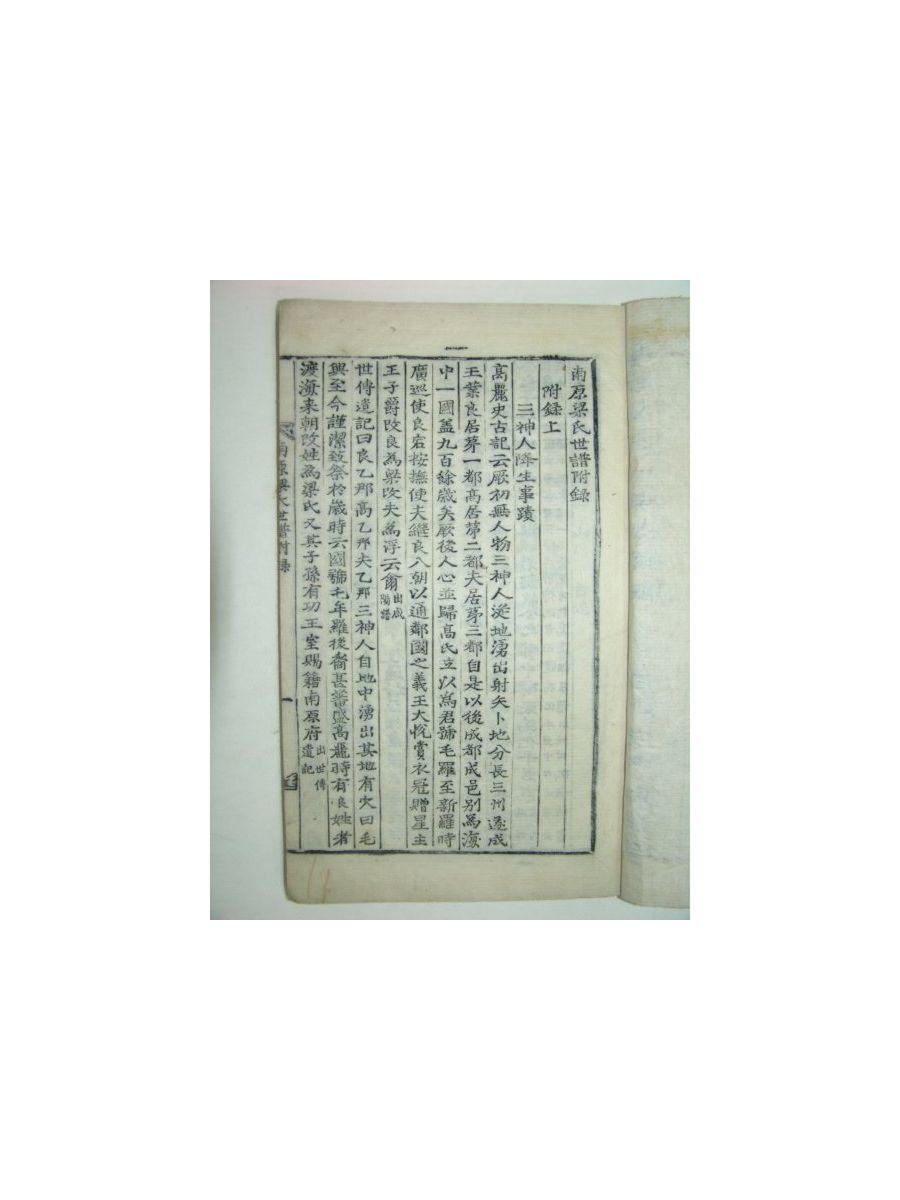 南原梁氏世譜附録
附録上
三神人降生事蹟
高麗史古記云厥初無人物三神人從地湧出射矢卜地分長三州遂成
王業良居苐一都高居苐二都夫居苐三都自是以後成都成邑别為海
中一國盖九百餘歳矣厥後人心並歸高氏立以為君號毛羅至新羅時
廣巡使良宕按撫使夫繼良入朝以通鄰國之義王大悅賞衣冠贈星主
王子爵改良為梁改夫為浮云爾出咸陽譜
世傳遺記曰良乙那高乙那夫乙那三神人自地中湧出其地有穴曰毛
興至今謹潔致祭於歳時云國號乇牟羅後裔甚蕃盛高麗時有良姓者
渡海来朝改姓為梁氏又其子孫有功王室賜籍南原府出世傳遺記
南原梁氏世譜附録 一